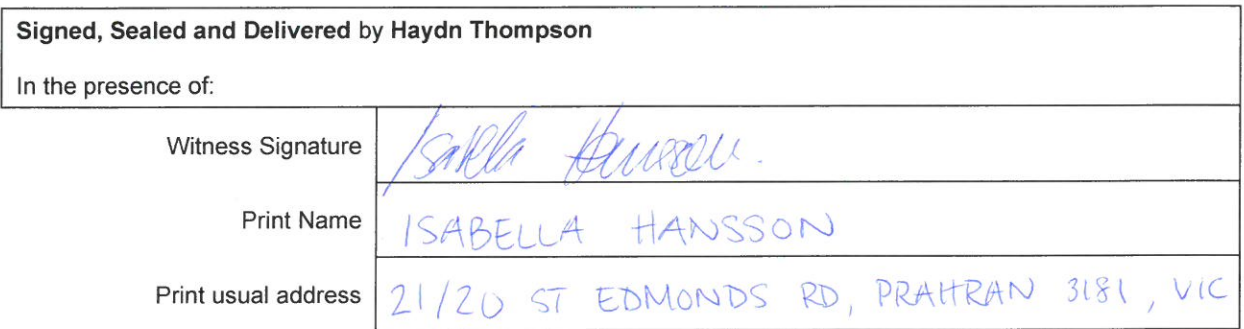 Signed, Sealed and Delivered by Haydn Thompson
In the presence of:
Witness Signature Isabella Hansson.
Print Name ISABELLA HANSSON
Print usual address 21/20 ST EDMONDS RD, PRAHRAN 3181, VIC